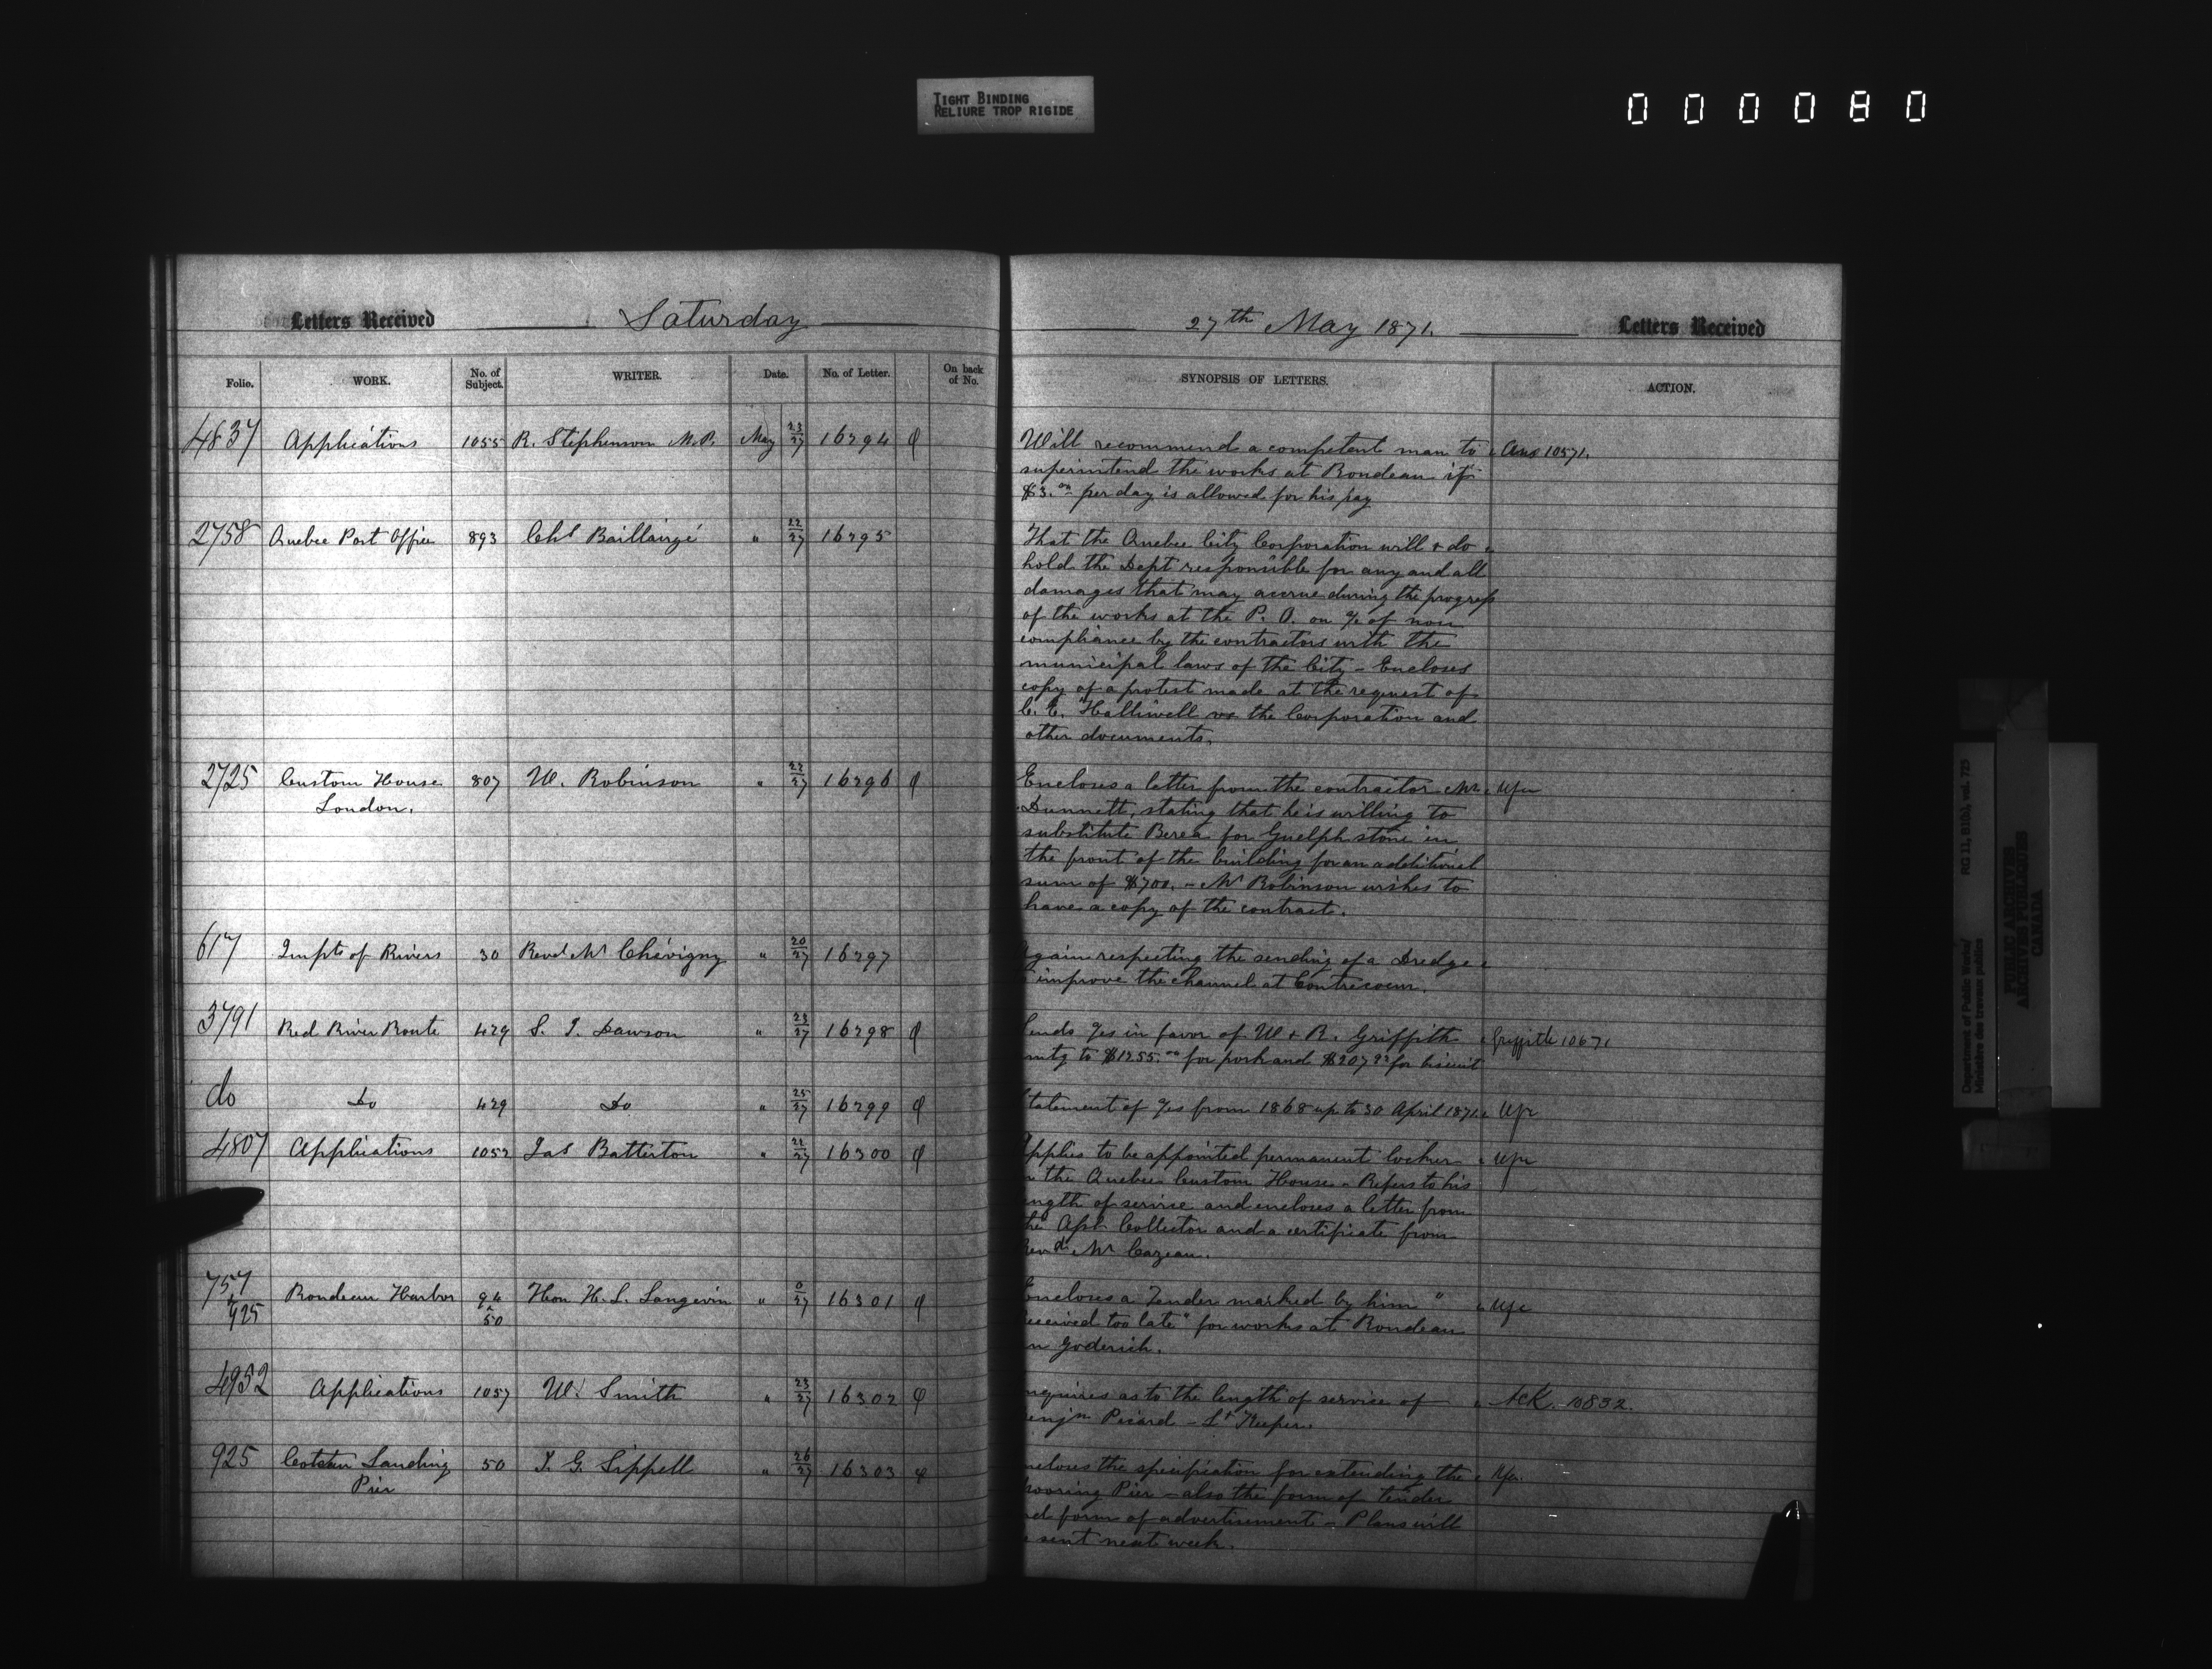 TIGHT BINDING
RELIURE TROP RIGIDE
000080
Letters Received Saturday
Folio. WORK. No. of Subject. WRITER. Date. No. of Letter. On back of No.
4837 Applications 1055 R. Stephenson M.P. May 23/27 16294
2758 Quebec Post Office 893 Chs Baillairgé " 22/27 16295
2725 Custom House 807 W. Robinson " 22/27 16296
London.
617 Impts of Rivers 30 Revd Mr Chévigny " 20/27 16297
3791 Red River Route 429 S. J. Dawson " 23/27 16298
do Do 429 Do " 25/27 16299
4807 Applications 1052 Jas Batterton " 22/27 16300
757 & 925 Rondeau Harbor 94 & 50 Hon H. L. Langevin " 0/27 16301
4952 Applications 1057 W. Smith " 23/27 16302
925 Coteau Landing 50 J. G. Sippell " 26/27 16303
Pier
27th May 1871. Letters Received
SYNOPSIS OF LETTERS. ACTION.
Will recommend a competent man to Ans 10571.
superintend the works at Rondeau if
$3.00 per day is allowed for his pay
That the Quebec City Corporation will & do
hold the Dept responsible for any and all
damages that may accrue during the progress
of the works at the P. O. on a/c of non
compliance by the contractors with the
municipal laws of the City - Encloses
copy of a protest made at the request of
C. E. Halliwell vs the Corporation and
other documents.
Encloses a letter from the contractor Mr
Dunnett, stating that he is willing to
substitute Berea for Guelph stone in
the front of the building for an additional
sum of $700. - Mr Robinson wishes to
have a copy of the contract.
gain respecting the sending of a Dredge
improve the channel at Contrecoeur.
ends a/cs in favor of W & R. Griffith Griffith 10671
mtg to $1255.00 for pork and for biscuit
tatement of a/cs from 1868 up to 30 April 1871.
pplies to be appointed permanent locker
n the Quebec Custom House - Refers to his
ngth of service and encloses a letter from
he Collector and a certificate from
Revd Mr Cazeau.
Encloses a Tender marked by him "
eceived too late" for works at Rondeau
n Goderich.
nquires as to the length of service of Ack. 10832.
enjn Picard - Lt Keeper.
ncloses the specification for extending the
ooring Pier - also the form of tender
nd form of advertisement - Plans will
e sent next week.
Department of Public Works/
Ministère des travaux publics
RG 11, B1(b), vol. 723
PUBLIC ARCHIVES
ARCHIVES PUBLIQUES
CANADA